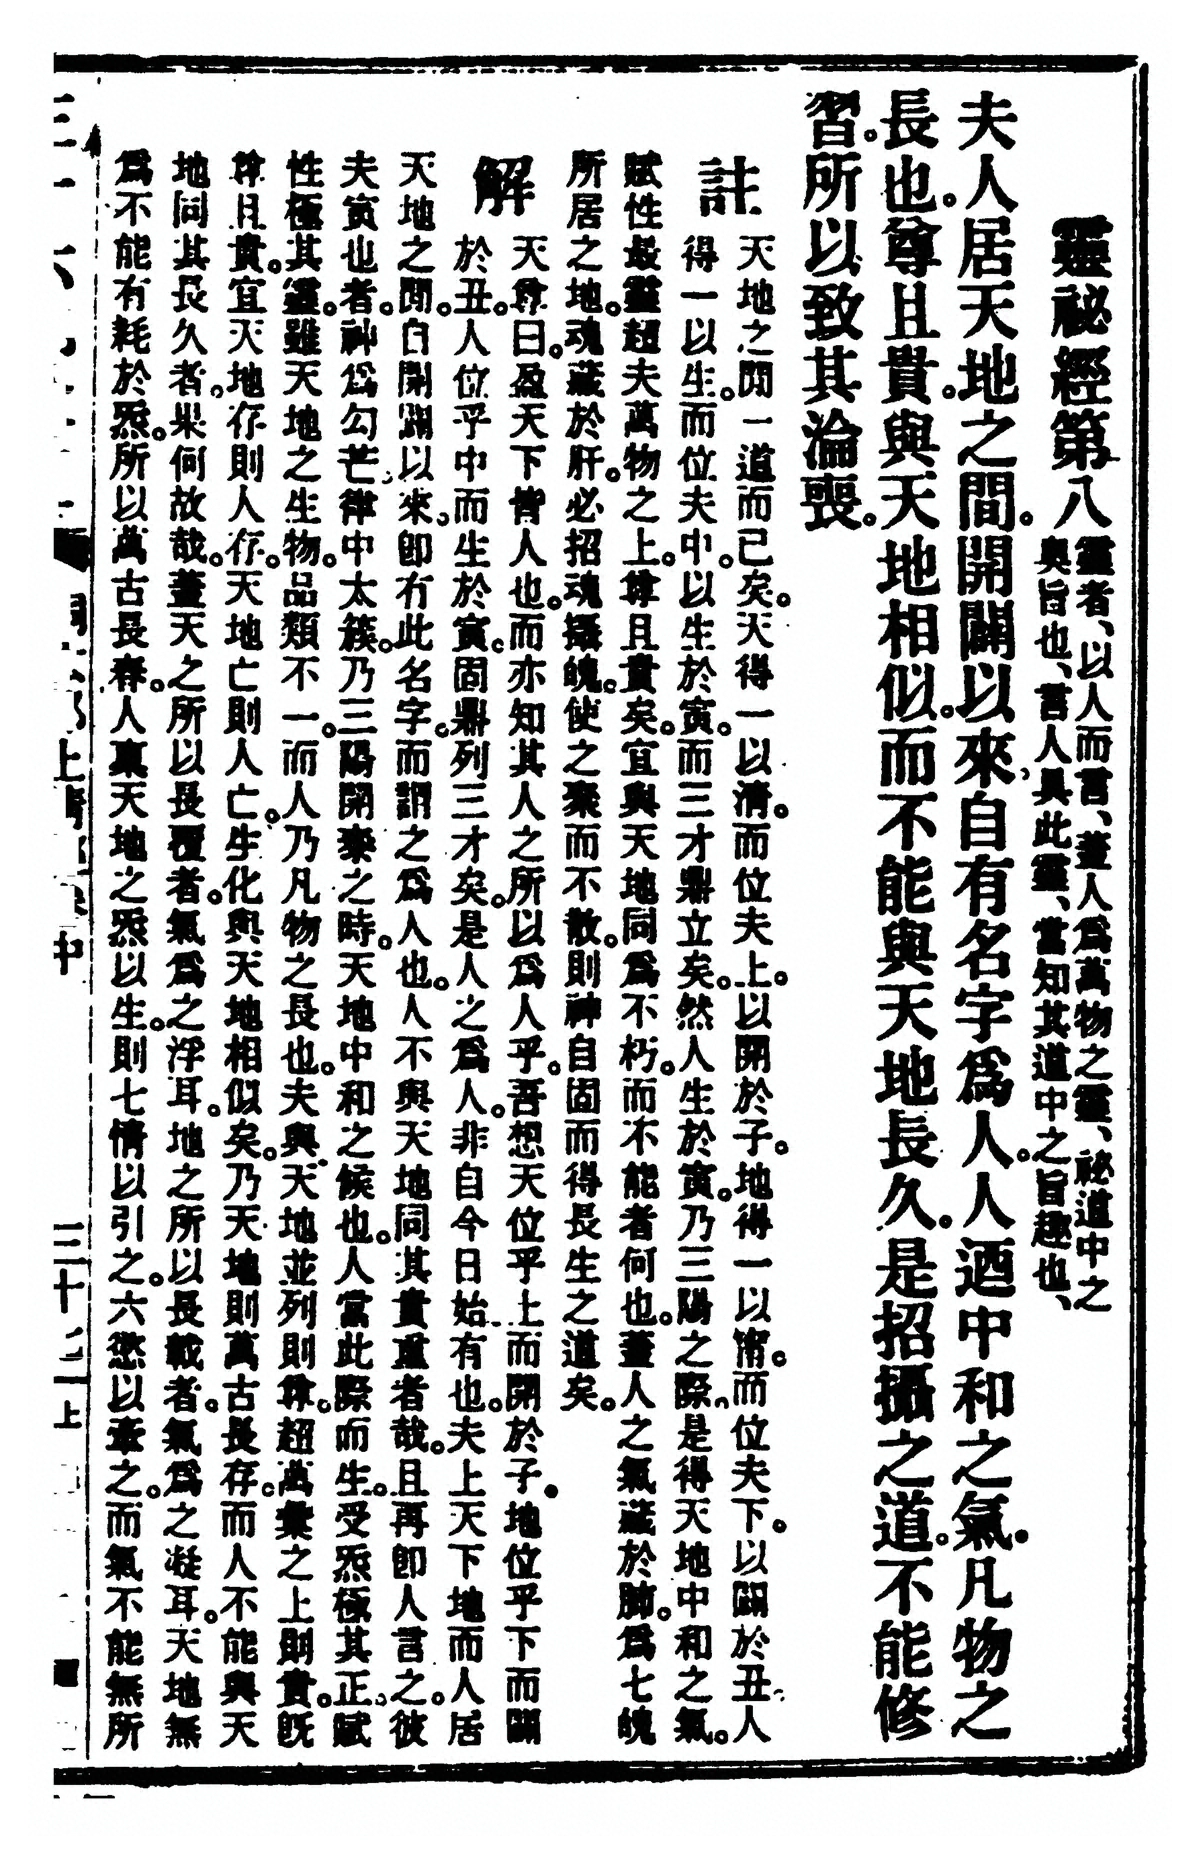 靈祕經第八
靈者、以人而言、蓋人爲萬物之靈、祕道中之
奥旨也、言人具此靈、當知其道中之旨趣也、
夫人居天地之間。開闢以來、自有名字爲人。人酒中和之氣。凡物之
長也。尊且貴。與天地相似。而不能與天地長久。是招攝之道。不能修
習。所以致其淪喪。
註
天地之間一道而已矣。天得一以清。而位夫上。以開於子。地得一以甯。而位夫下。以闢於丑、人
得一以生。而位夫中。以生於寅。而三才鼎立矣。然人生於寅。乃三陽之際、是得天地中和之氣。
賦性最靈超夫萬物之上。尊且貴矣。宜與天地同爲不朽。而不能者何也。蓋人之氣藏於肺。爲七魄
所居之地。魂藏於肝。必招魂攝魄。使之聚而不散。則神自固而得長生之道矣。
解
天尊曰。盈天下皆人也。而亦知其人之所以爲人乎。吾想天位乎上而開於子。地位乎下而闢
於丑。人位乎中而生於寅。固鼎列三才矣。是人之爲人。非自今日始有也。夫上天下地而人居
天地之間。自開闢以來、卽有此名字。而謂之爲人也。人不與天地同其貴重者哉。且再卽人言之。彼
夫寅也者。神爲勾芒、律中太簇。乃三陽開泰之時。天地中和之候也。人當此際而生。受炁極其正、賦
性極其靈。雖天地之生物。品類不一。而人乃凡物之長也。夫與天地並列則尊。超萬彙之上則貴。旣
尊且貴。宜天地存則人存。天地亡則人亡。生化與天地相似矣。乃天地則萬古長存。而人不能與天
地同其長久者。果何故哉。蓋天之所以長覆者。氣爲之浮耳。地之所以長載者。氣爲之凝耳。天地無
爲不能有耗於炁。所以萬古長春。人稟天地之炁以生。則七情以引之。六慾以牽之。而氣不能無所